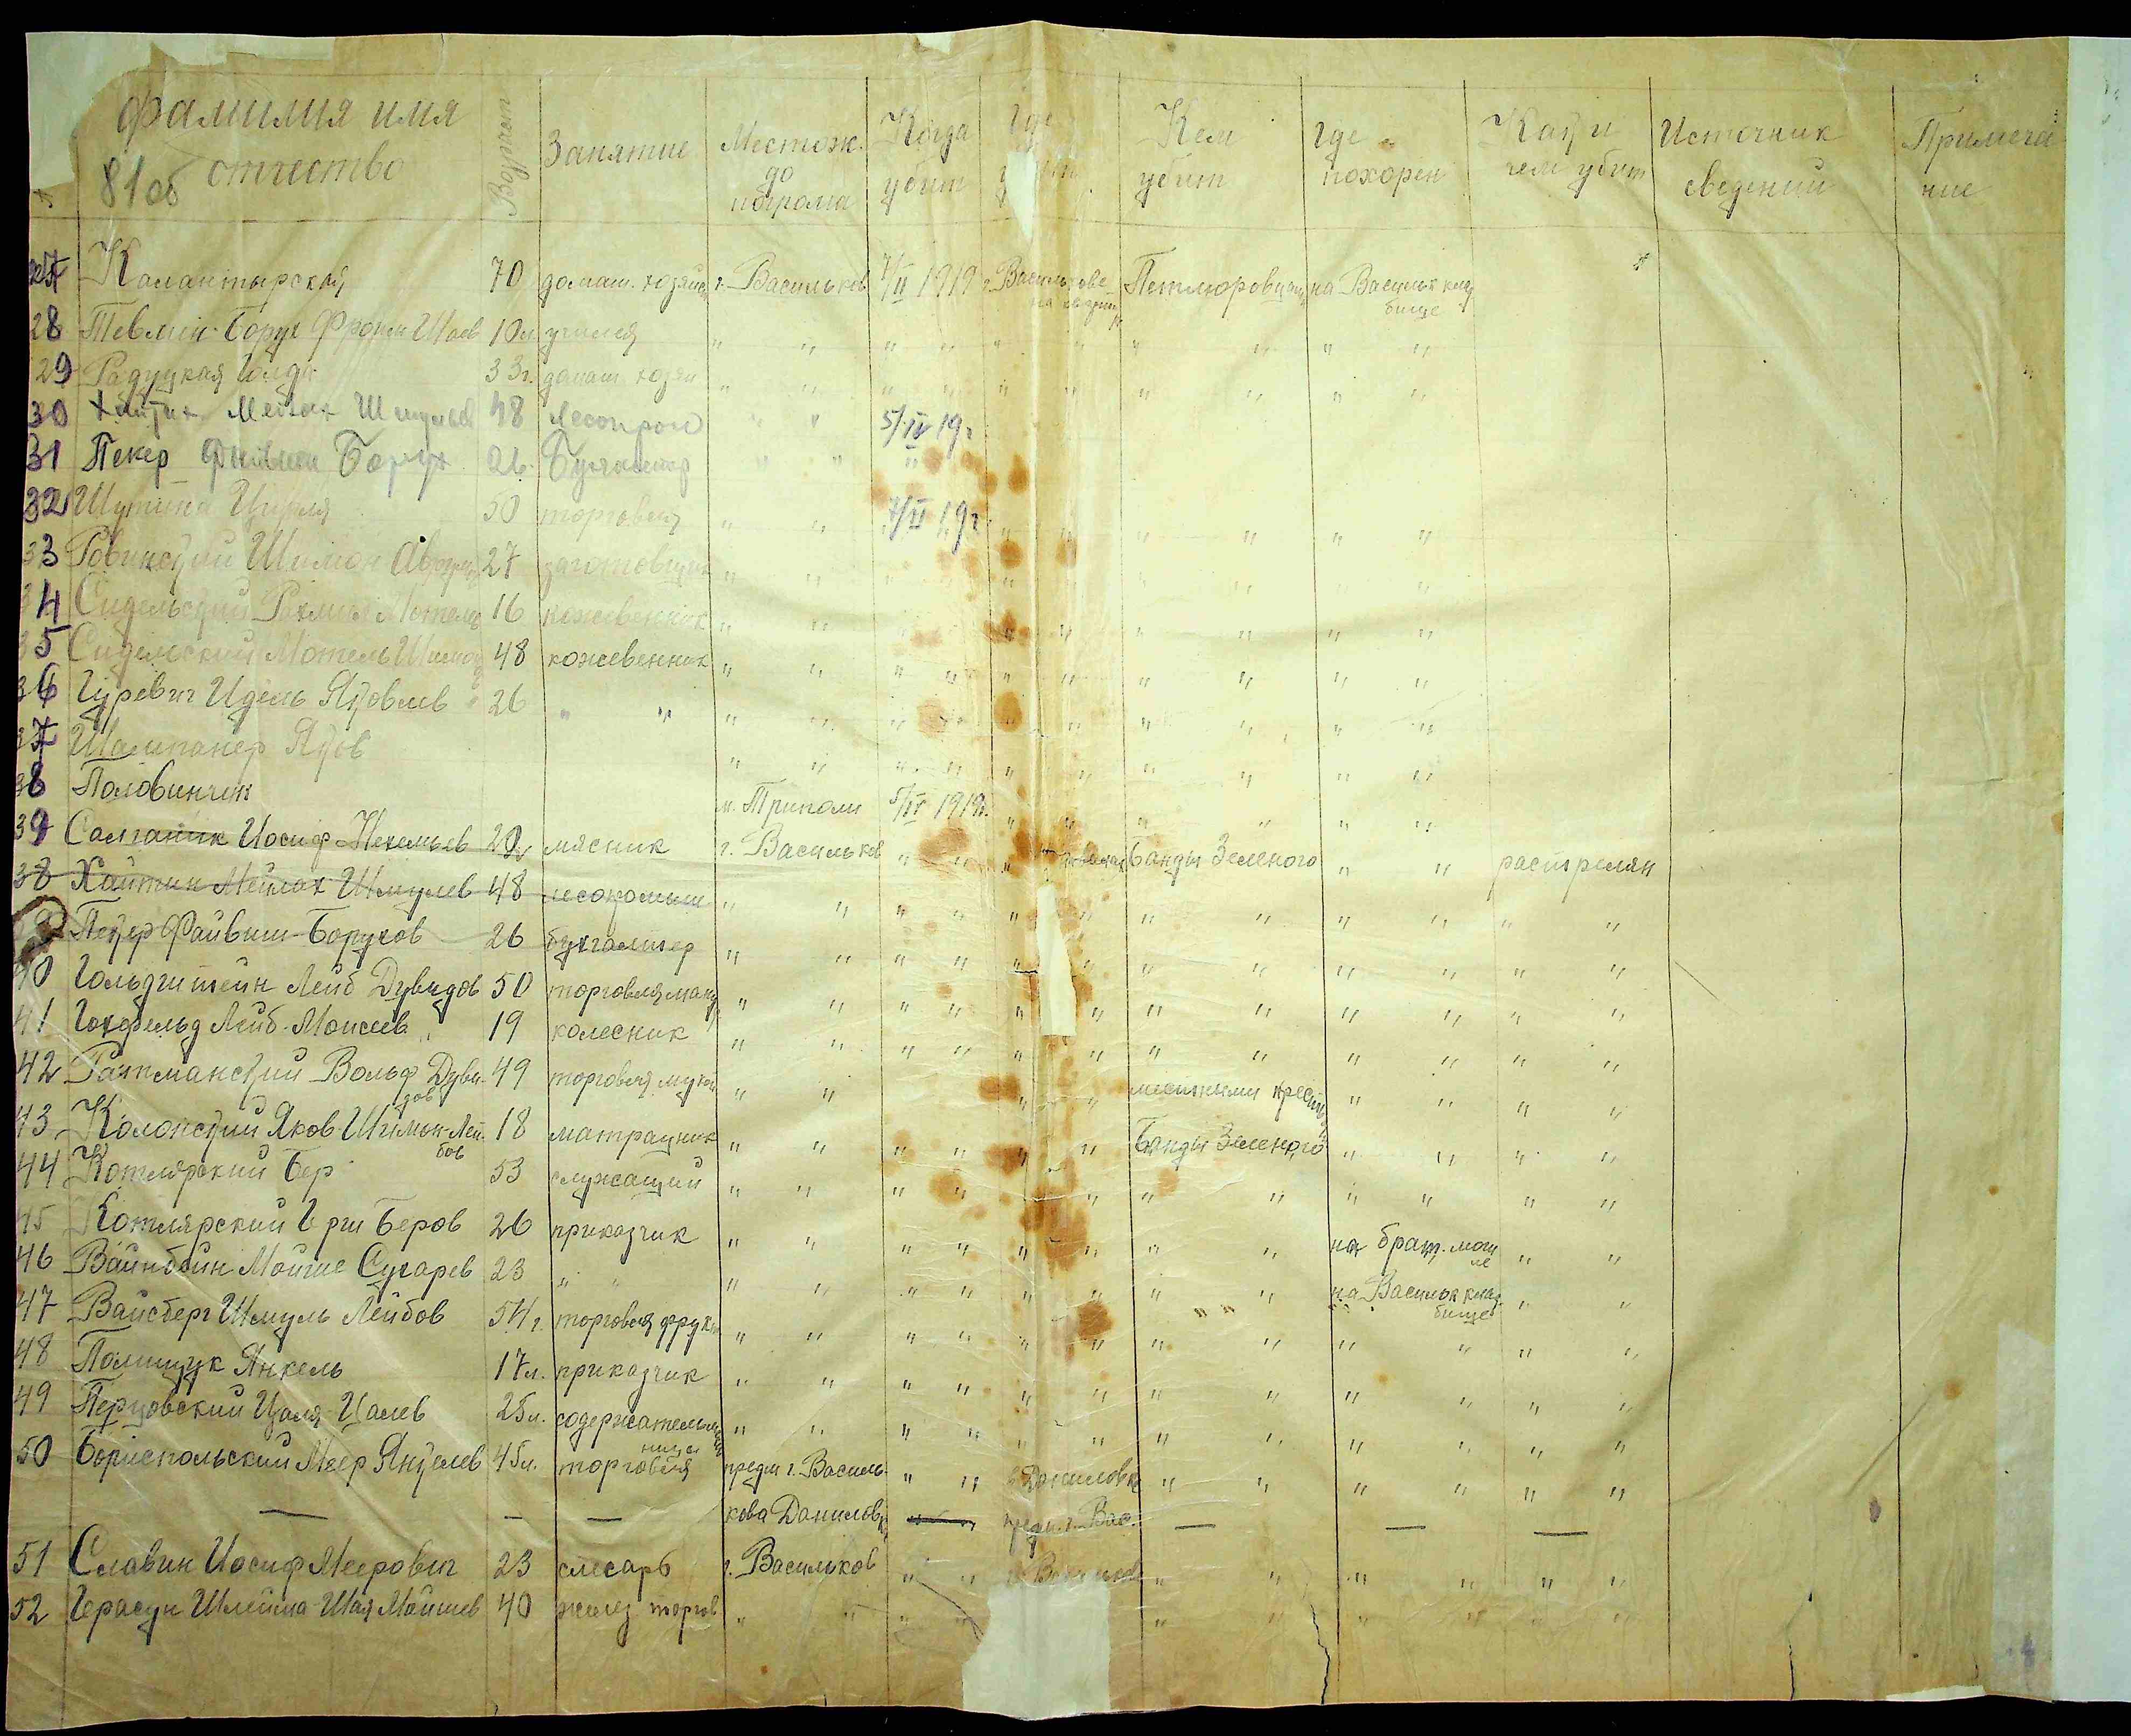 Фамилия имя отчество
81об
Возраст
Занятие
Местож. до погрома
Когда убит
Где
Кем убит
Где похорен
Как и чем убит
Источник сведений
Примечание
27 Калантырская 70 домаш. хозяйс г. Васильков 7/II 1919 г. Василькове Петлюровцами на Васильк клад
бище
28 Тевлин Борух Шаев 10л. учился " " " " " " " " " "
29 Радуцкая Голда 33г. домаш. хозяй " " " " " " " " " "
30 Хайтин Мейлах Шмулев 48 Лесопром " " 5/IV 19г
31 Пекер Файвиш Борух 26. Бухгалтер " " "
32 Шутина 50 торговля " " 7/II 19г. " " " " " "
33 Ровинский Шимон 27 заготовщик " " " " " " " " " "
34 Сидельский Мотелев 16 кожевенник " " " " " " " " " "
35 Сидельский Мотель 48 кожевенник " " " " " " " " " "
36 Гуревич Идель Яковлев 26 " " " " " " " " " " " "
37 Шампанер Яков " " " " " " " " " "
38 Половинчик м. Триполи 5/IV 1919г. " " " " " "
39 Салганик Иосиф 20 мясник г. Васильков " " " Банды Зеленого " " растрелян
38 Хайтин Мейлах Шмулев 48 лесопромыш " " " " " " " " " " " "
Пекер Файвиш-Борухов 26 бухгалтер " " " " " " " " " " " "
40 Гольдштейн Лейб Дувидов 50 торговля " " " " " " " " " " " "
41 Лейб-Моисеев 19 колесник " " " " " " " " " " " "
42 Ратманский Вольф Дуви- 49 торговля мукой " " " " местными " " " "
дов
43 Яков-Шимон-Лей 18 матрацник " " " " " " Банды Зеленого " " " "
бов
44 Котлярский Бер 53 служащий " " " " " " " " " " "
45 Котлярский Герш Беров 26 приказчик " " " " " " " " на брат. моги " "
ле
46 Вайнбейн Мойше Сухарев 23 " " " " " " " " " " на Васильк клад " "
бище
47 Вайсберг Шмуль Лейбов 54г. торговля фрукт " " " " " " " " " " " "
48 Полищук Янкель 17л. приказчик " " " " " " " " " " " "
49 Перцовский Цаля-Цалев 25л. " " " " " " " " " " " "
50 Бориспольский Меер Янкелев 45л. торговля предм г. Василь- " " в Даниловке " " " " " "
— — — кова Даниловк — предм. г. Вас. — — —
51 Славин Иосиф Меерович 23 слесарь г. Васильков " " " " " " " "
52 Герасун Шлейма-Шая Мойшев 40 желез торгов " " " " " " " " " "